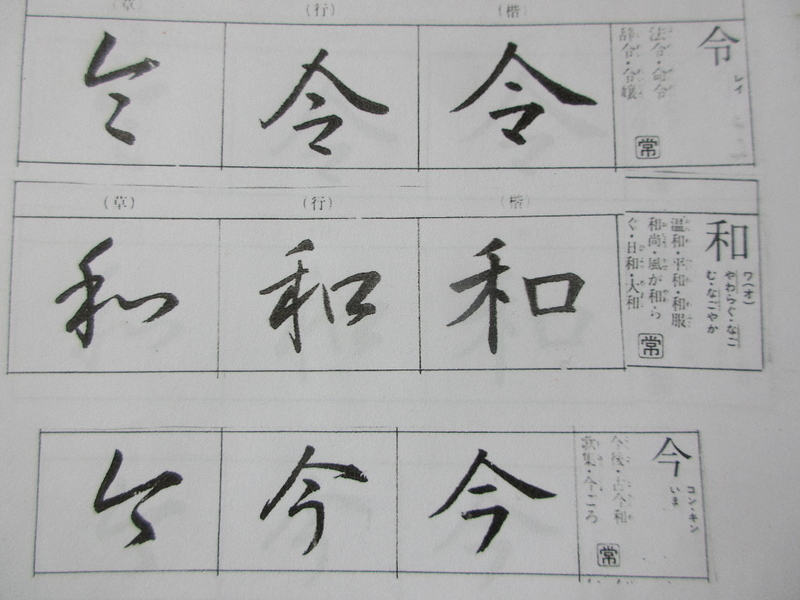 (楷)
(行)
(草)
令
レイ
法令・命令
辞令・令嬢
常
令
令
令
(楷)
(行)
(草)
和
ワ(オ)
やわらぐ・なご
む・なごやか
温和・平和・和服
和尚・風が和ら
ぐ・日和・大和
常
和
和
和
今
コン・キン
いま
今後・古今和
歌集・今ごろ
常
今
今
今